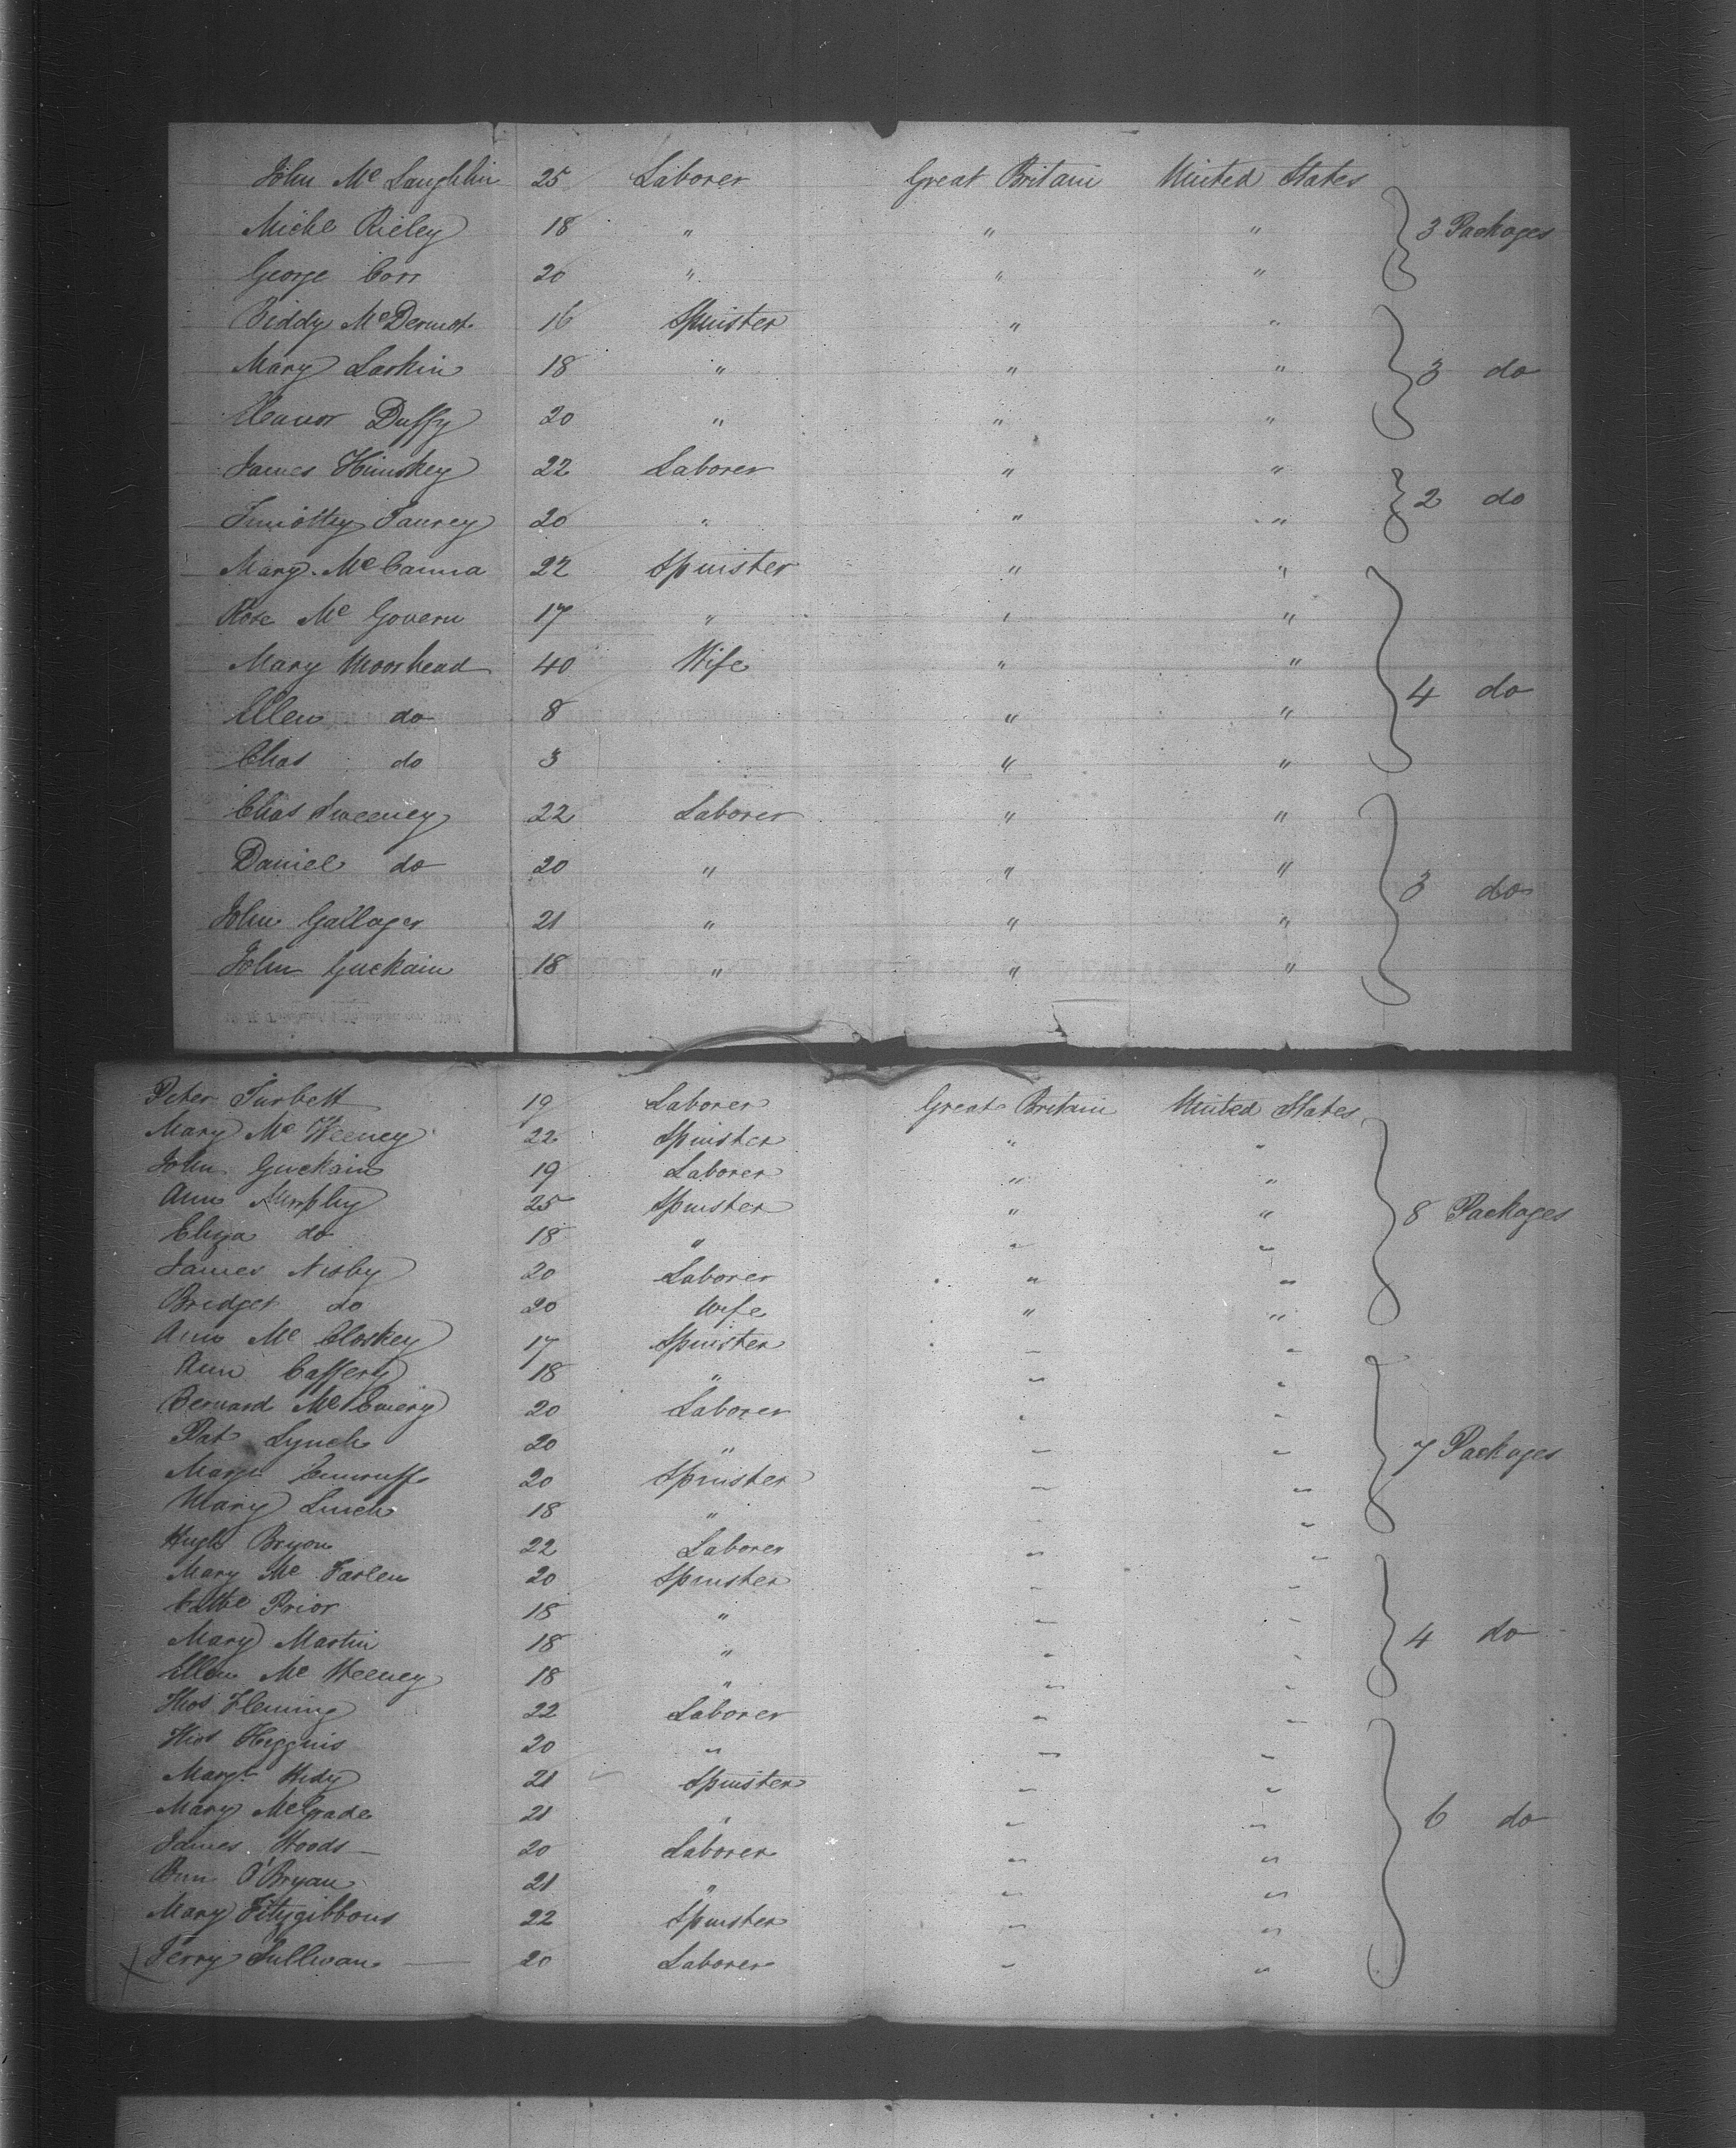 John Mc Laughlin 25 Laborer Great Britain United States
Michl Rieley 18 " " " 3 Packages
George Corr 20 " " "
Biddy McDermot 16 Spinster " "
Mary Larkin 18 " " " 3 do
Eleanor Duffy 20 " " "
James 22 Laborer " "
Timothy 20 " " " 2 do
Mary McCanna 22 Spinster " "
Rose Mc Govern 17 " " "
Mary Moorhead 40 Wife " "
Ellen do 8 " " 4 do
Chas do 3 " "
Chas Sweeney 22 Laborer " "
Daniel do 20 " " "
John Gallager 21 " " " 3 do
John Guckain 18 " " "
Peter Turbett 19 Laborer Great Britain United States
Mary Mc Weeney 22 Spinster " "
John Guckain 19 Laborer " "
Ann Murphy 25 Spinster " " 8 Packages
Eliza do 18 " " "
James Nisby 20 Laborer " "
Bridget do 20 Wife " "
Ann Mc Closkey 17 Spinster " "
Ann Caffery 18 " " "
Bernard 20 Laborer " "
Pat Lynch 20 " " " 7 Packages
20 Spinster " "
Mary Linch 18 " " "
Hugh Bryon 22 Laborer " "
Mary Mc Farlen 20 Spinster " "
Cathe Prior 18 " " "
Mary Martin 18 " " " 4 do
Ellen Mc Weeney 18 " " "
Thos Fleming 22 Laborer " "
Thos Higgins 20 " " "
Margt 21 Spinster " "
Mary McGrade 21 " " " 6 do
James Woods 20 Laborer " "
O'Bryan 21 " " "
Mary Fitzgibbons 22 Spinster " "
Jerry Sullivan 20 Laborer " "